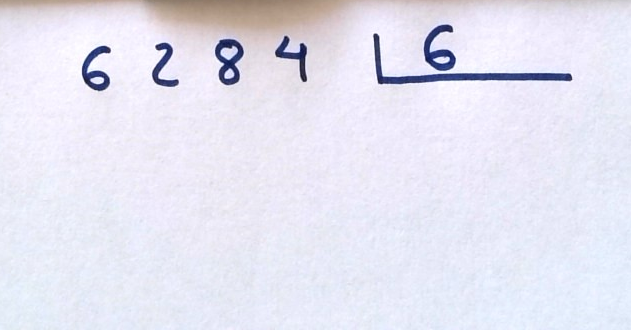 6 2 8 4 6